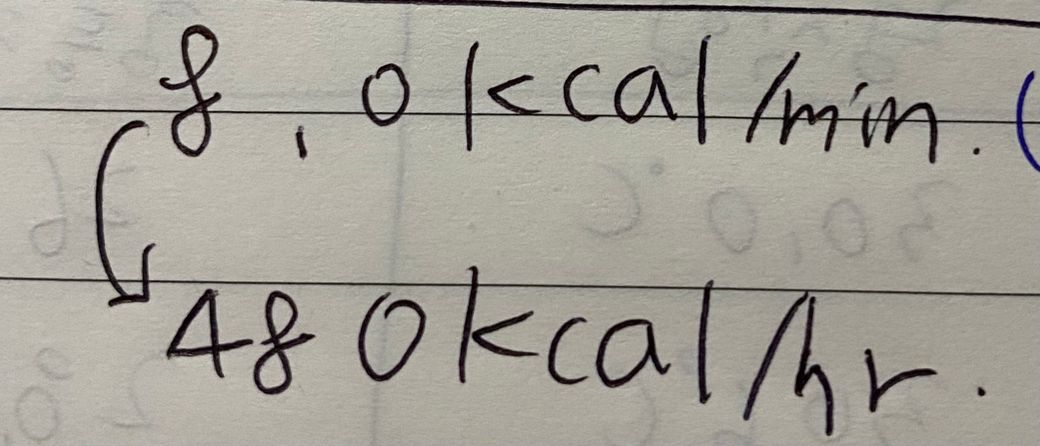 8.0kcal/min.
480kcal/hr.